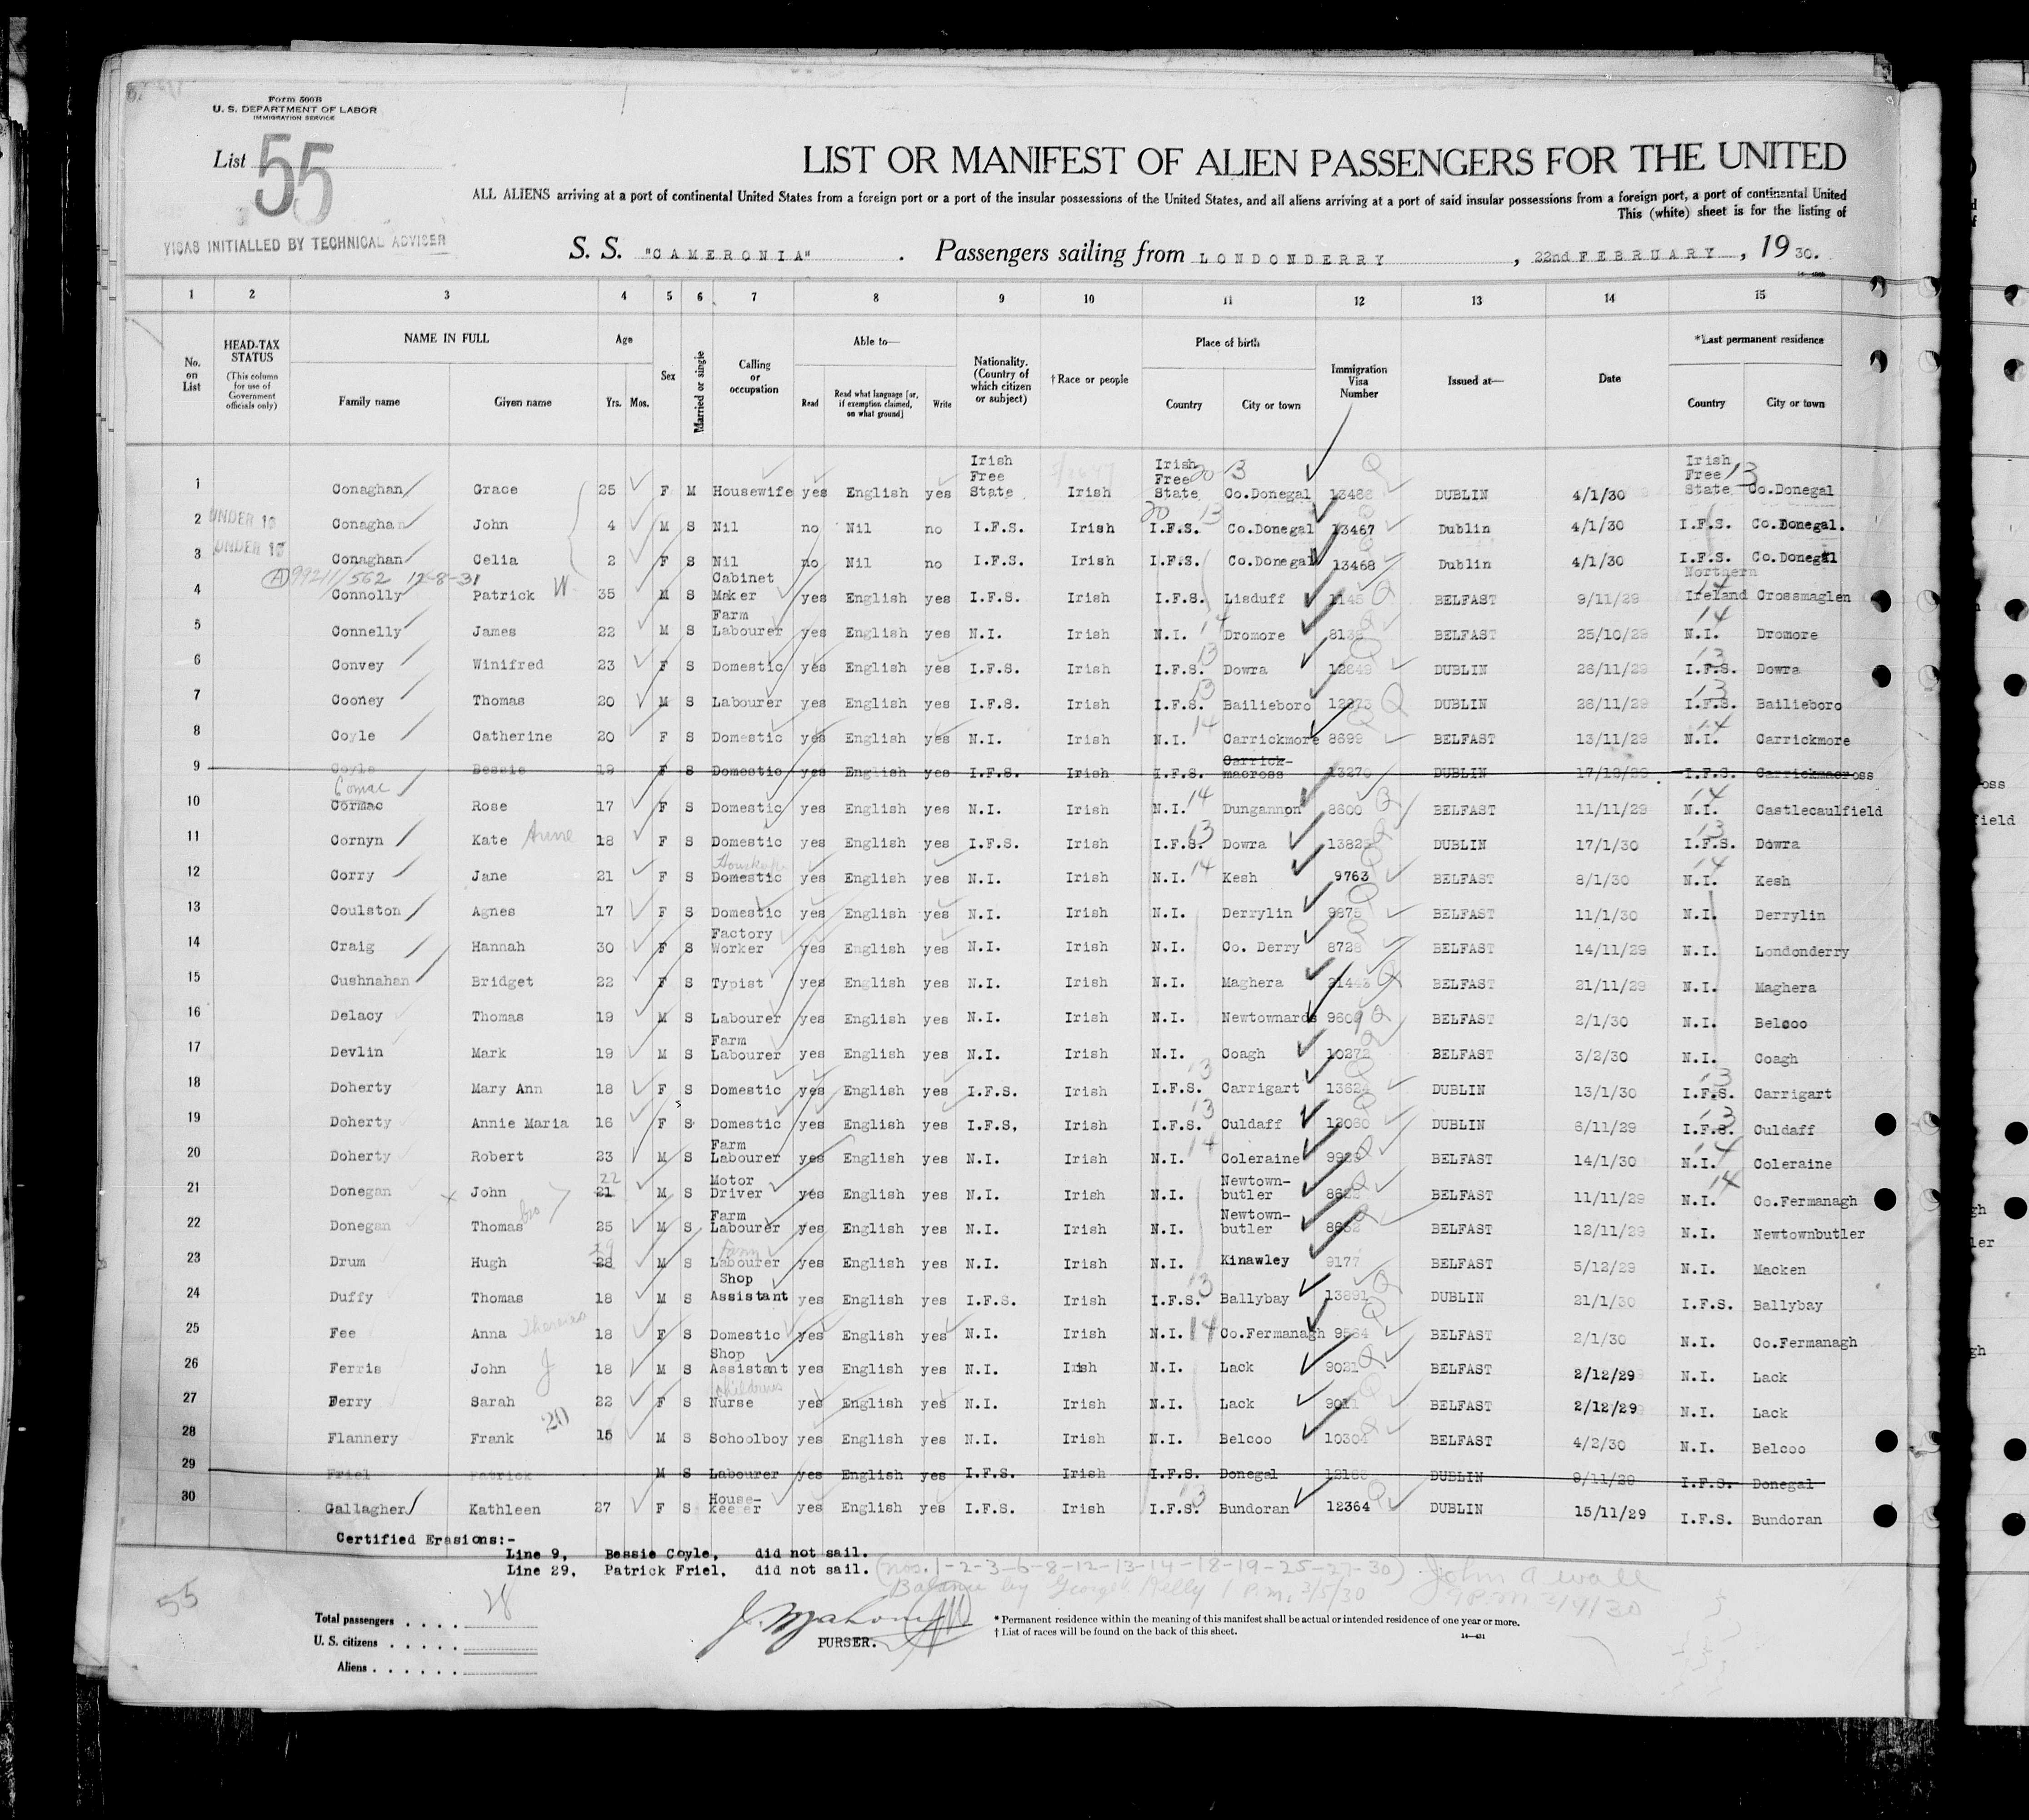 Form 500B
U. S. DEPARTMENT OF LABOR
IMMIGRATION SERVICE
List 55
VISAS INITIALLED BY TECHNICAL ADVISER
LIST OR MANIFEST OF ALIEN PASSENGERS FOR THE UNITED
ALL ALIENS arriving at a port of continental United States from a foreign port or a port of the insular possessions of the United States, and all aliens arriving at a port of said insular possessions from a foreign port, a port of continental United
This (white) sheet is for the listing of
S. S. "CAMERONIA" . Passengers sailing from LONDONDERRY , 22nd FEBRUARY , 19 30.
1 2 3 4 5 6 7 8 9 10 11 12 13 14 15
No. on List
HEAD-TAX STATUS (This column for use of Government officials only)
NAME IN FULL
Family name Given name
Age
Yrs. Mos.
Sex
Married or single
Calling or occupation
Able to—
Read
Read what language [or, if exemption claimed, on what ground]
Write
Nationality. (Country of which citizen or subject)
†Race or people
Place of birth
Country City or town
Immigration Visa Number
Issued at—
Date
*Last permanent residence
Country City or town
1 Conaghan Grace 25 F M Housewife yes English yes Irish Free State Irish Irish Free State Co.Donegal DUBLIN 4/1/30 Irish Free State Co.Donegal
2 UNDER Conaghan John 4 M S Nil no Nil no I.F.S. Irish I.F.S. Co.Donegal 13467 Dublin 4/1/30 I.F.S. Co.Donegal.
3 UNDER Conaghan Celia 2 F S Nil no Nil no I.F.S. Irish I.F.S. Co.Donegal 13468 Dublin 4/1/30 I.F.S. Co.Donegal
99211/562 12-8-31
4 Connolly Patrick W 35 M S Cabinet Maker yes English yes I.F.S. Irish I.F.S. Lisduff BELFAST 9/11/29 Northern Ireland Crossmaglen
5 Connelly James 22 M S Farm Labourer yes English yes N.I. Irish N.I. Dromore BELFAST 25/10/29 N.I. Dromore
6 Convey Winifred 23 F S Domestic yes English yes I.F.S. Irish I.F.S. Dowra DUBLIN 26/11/29 I.F.S. Dowra
7 Cooney Thomas 20 M S Labourer yes English yes I.F.S. Irish I.F.S. Bailieboro DUBLIN 26/11/29 I.F.S. Bailieboro
8 Coyle Catherine 20 F S Domestic yes English yes N.I. Irish N.I. Carrickmore 8699 BELFAST 13/11/29 N.I. Carrickmore
9 Coyle Bessie 19 F S Domestic yes English yes I.F.S. Irish I.F.S. Carrick-macross DUBLIN 17/12/29 I.F.S. Carrickmacross
Comac
10 Cormac Rose 17 F S Domestic yes English yes N.I. Irish N.I. 14 Dungannon 8600 BELFAST 11/11/29 N.I. Castlecaulfield
11 Cornyn Kate Anne 18 F S Domestic yes English yes I.F.S. Irish I.F.S. Dowra DUBLIN 17/1/30 I.F.S. Dowra
12 Corry Jane 21 F S Domestic yes English yes N.I. Irish N.I. 14 Kesh 9763 BELFAST 8/1/30 N.I. Kesh
13 Coulston Agnes 17 F S Domestic yes English yes N.I. Irish N.I. Derrylin 9875 BELFAST 11/1/30 N.I. Derrylin
14 Craig Hannah 30 F S Factory Worker yes English yes N.I. Irish N.I. Co. Derry BELFAST 14/11/29 N.I. Londonderry
15 Cushnahan Bridget 22 F S Typist yes English yes N.I. Irish N.I. Maghera BELFAST 21/11/29 N.I. Maghera
16 Delacy Thomas 19 M S Labourer yes English yes N.I. Irish N.I. Newtownards BELFAST 2/1/30 N.I. Belcoo
17 Devlin Mark 19 M S Farm Labourer yes English yes N.I. Irish N.I. Coagh 10272 BELFAST 3/2/30 N.I. Coagh
18 Doherty Mary Ann 18 F S Domestic yes English yes I.F.S. Irish I.F.S. Carrigart 13624 DUBLIN 13/1/30 I.F.S. Carrigart
19 Doherty Annie Maria 16 F S Domestic yes English yes I.F.S. Irish I.F.S. Culdaff DUBLIN 6/11/29 I.F.S. Culdaff
20 Doherty Robert 23 M S Farm Labourer yes English yes N.I. Irish N.I. 14 Coleraine BELFAST 14/1/30 N.I. Coleraine
21 Donegan John 22 21 M S Motor Driver yes English yes N.I. Irish N.I. Newtown-butler BELFAST 11/11/29 N.I. Co.Fermanagh
22 Donegan Thomas bro 25 M S Farm Labourer yes English yes N.I. Irish N.I. Newtown-butler BELFAST 12/11/29 N.I. Newtownbutler
23 Drum Hugh 29 28 M S Farm Labourer yes English yes N.I. Irish N.I. Kinawley 9177 BELFAST 5/12/29 N.I. Macken
24 Duffy Thomas 18 M S Shop Assistant yes English yes I.F.S. Irish I.F.S. Ballybay 13891 DUBLIN 21/1/30 I.F.S. Ballybay
25 Fee Anna 18 F S Domestic yes English yes N.I. Irish N.I. 14 Co.Fermanagh BELFAST 2/1/30 N.I. Co.Fermanagh
26 Ferris John J 18 M S Shop Assistant yes English yes N.I. Irish N.I. Lack 9021 BELFAST 2/12/29 N.I. Lack
27 Ferry Sarah 22 F S Childrens Nurse yes English yes N.I. Irish N.I. Lack BELFAST 2/12/29 N.I. Lack
28 Flannery Frank 20 15 M S Schoolboy yes English yes N.I. Irish N.I. Belcoo 10304 BELFAST 4/2/30 N.I. Belcoo
29 Friel Patrick M S Labourer yes English yes I.F.S. Irish I.F.S. Donegal DUBLIN 9/11/29 I.F.S. Donegal
30 Gallagher Kathleen 27 F S House-keeper yes English yes I.F.S. Irish I.F.S. Bundoran 12364 DUBLIN 15/11/29 I.F.S. Bundoran
Certified Erasions:-
Line 9, Bessie Coyle, did not sail.
Line 29, Patrick Friel, did not sail.
(nos. 1-2-3-6-8-12-13-14-18-19-25-27-30) John A Wall
Balance by George Kelly 1 P.m. 3/5/30 9 P.M. 3/4/30
55
Total passengers . . . .
U. S. citizens . . . . .
Aliens . . . . . .
PURSER.
* Permanent residence within the meaning of this manifest shall be actual or intended residence of one year or more.
† List of races will be found on the back of this sheet.